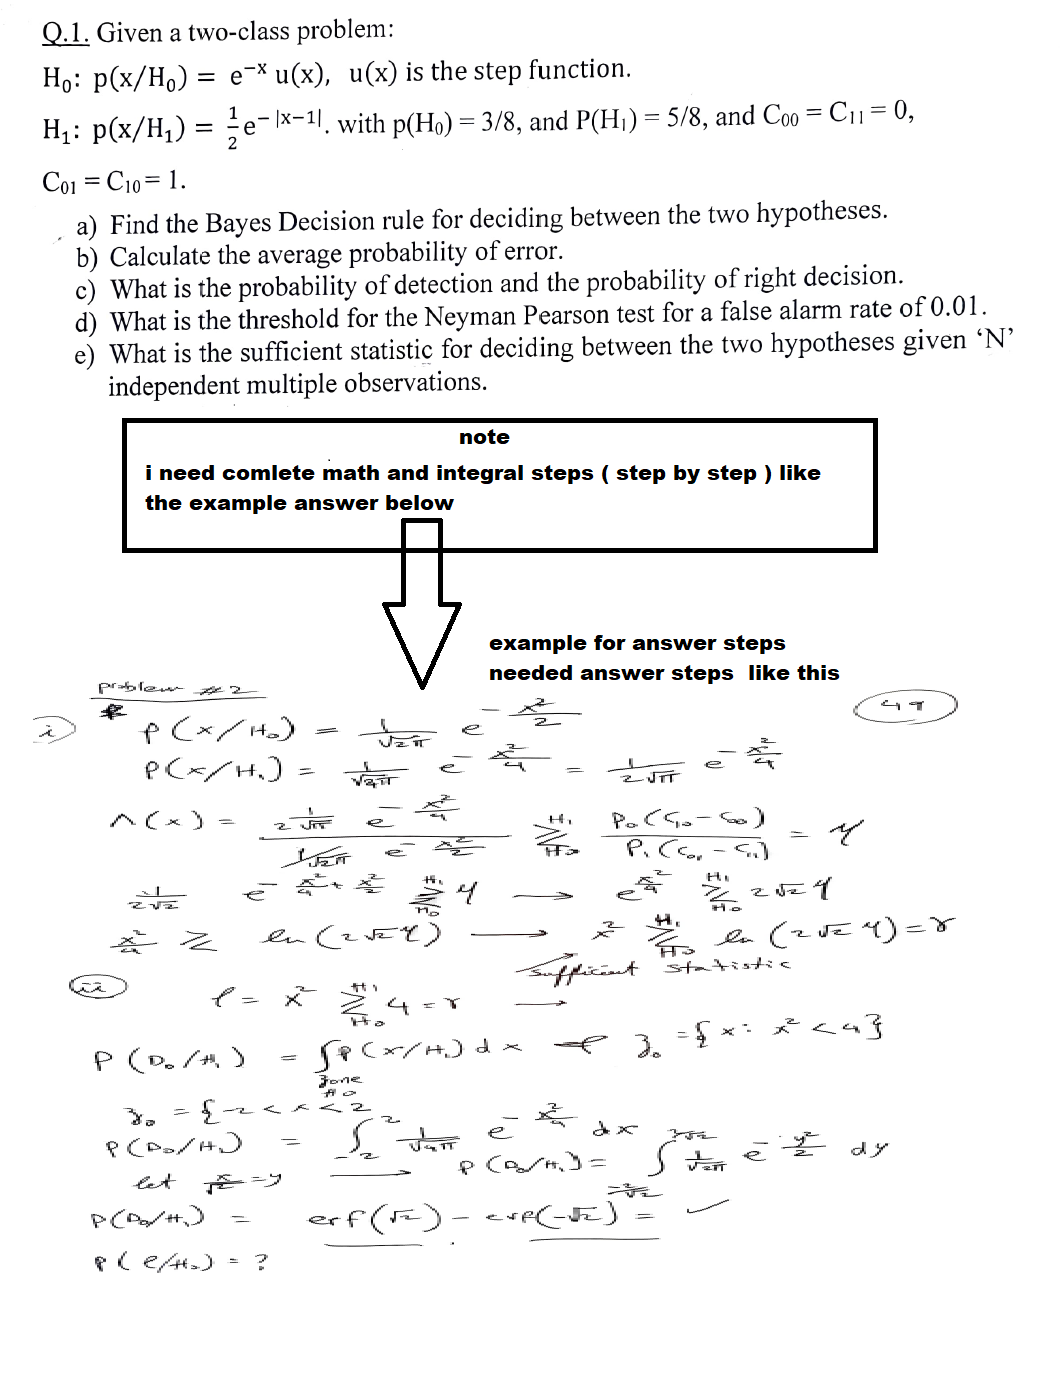 Q.1. Given a two-class problem:
H₀: p(x/H₀) = e⁻ˣ u(x), u(x) is the step function.
H₁: p(x/H₁) = ½e^{-|x-1|}. with p(H₀) = 3/8, and P(H₁) = 5/8, and C₀₀ = C₁₁ = 0,
C₀₁ = C₁₀ = 1.
a) Find the Bayes Decision rule for deciding between the two hypotheses.
b) Calculate the average probability of error.
c) What is the probability of detection and the probability of right decision.
d) What is the threshold for the Neyman Pearson test for a false alarm rate of 0.01.
e) What is the sufficient statistic for deciding between the two hypotheses given ‘N’
independent multiple observations.
note
i need comlete math and integral steps ( step by step ) like
the example answer below
example for answer steps
needed answer steps like this
problem #2
i) P(x/H₀) = 1/√2π e^{-x²/2}
P(x/H₁) = 1/√4π e^{-x²/4} = 1/2√π e^{-x²/4}
Λ(x) = (1/2√π e^{-x²/4}) / (1/√2π e^{-x²/2}) ≷ H₁ H₀ P₀(C₁₀-C₀₀) / P₁(C₀₁-C₁₁) = η
e^{-x²/4 + x²/2} ≷ H₁ H₀ η → e^{x²/4} ≷ H₁ H₀ 2√2 η
x²/4 ≷ ln(2√2 η) → x² ≷ H₁ H₀ ln(2√2 η) = γ
sufficient statistic
ii) ℓ = x² ≷ H₁ H₀ 4 = γ →
P(D₀/H₁) = ∫ P(x/H₁) dx z₀ = {x: x² < 4}
zone H₀
z₀ = {-2 < x < 2
P(D₀/H₁) = ∫_{-2}^{2} 1/√4π e^{-x²/4} dx
let x/√2 = y → P(D₀/H₁) = ∫ 1/√2π e^{-y²/2} dy
P(D₀/H₁) = erf(√2) - erf(-√2) =
P(e/H₀) = ?